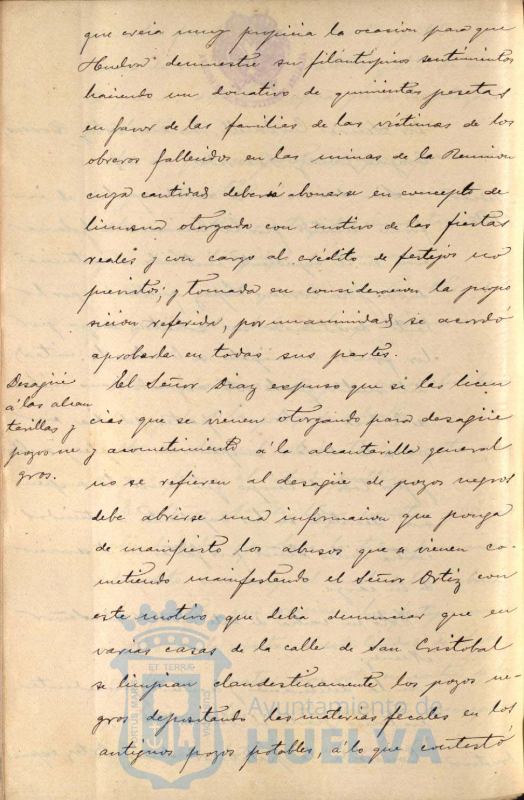 que creia muy propicia la ocasion para que
Huelva demuestre su filantrópico sentimientos
haciendo un donativo de quinientas pesetas
en favor de las familias de las victimas de los
obreros fallecidos en las minas de la Reunion
cuya cantidad deberá abonarse en concepto de
limosna otorgada con motivo de las fiestas
reales y con cargo al crédito de festejos no
previstos; y tomada en consideracion la propo
sicion referida, por unanimidad se acordó
aprobarla en todas sus partes.
Desagüe
á las alcan
tarillas y
pozos ne
gros.
El Señor Diaz expuso que si las licen
cias que se vienen otorgando para desagüe
y acometimiento á la alcantarilla general
no se refieren al desagüe de pozos negros
debe abrirse una informacion que ponga
de manifiesto los abusos que se vienen co-
metiendo manifestando el Señor Ortiz con
este motivo que debia denunciar que en
varias casas de la calle de San Cristobal
se limpian clandestinamente los pozos ne-
gros depositando las materias fecales en los
antiguos pozos potables, á lo que contestó
Ayuntamiento de
HUELVA